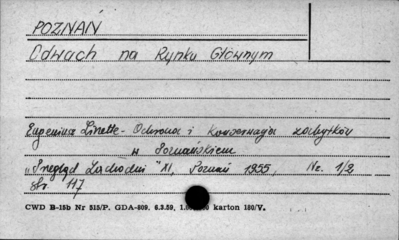 POZNAŃ
Odwach na Rynku Głównym
Eugeniusz Linette - Ochrona i konserwacja zabytków
w Poznańskiem
„Przegląd Zachodni" XI, Poznań 1955, Nr. 1/2
str. 117
CWD B-15b Nr 515/P. GDA-809. 6.3.59, karton 180/V.